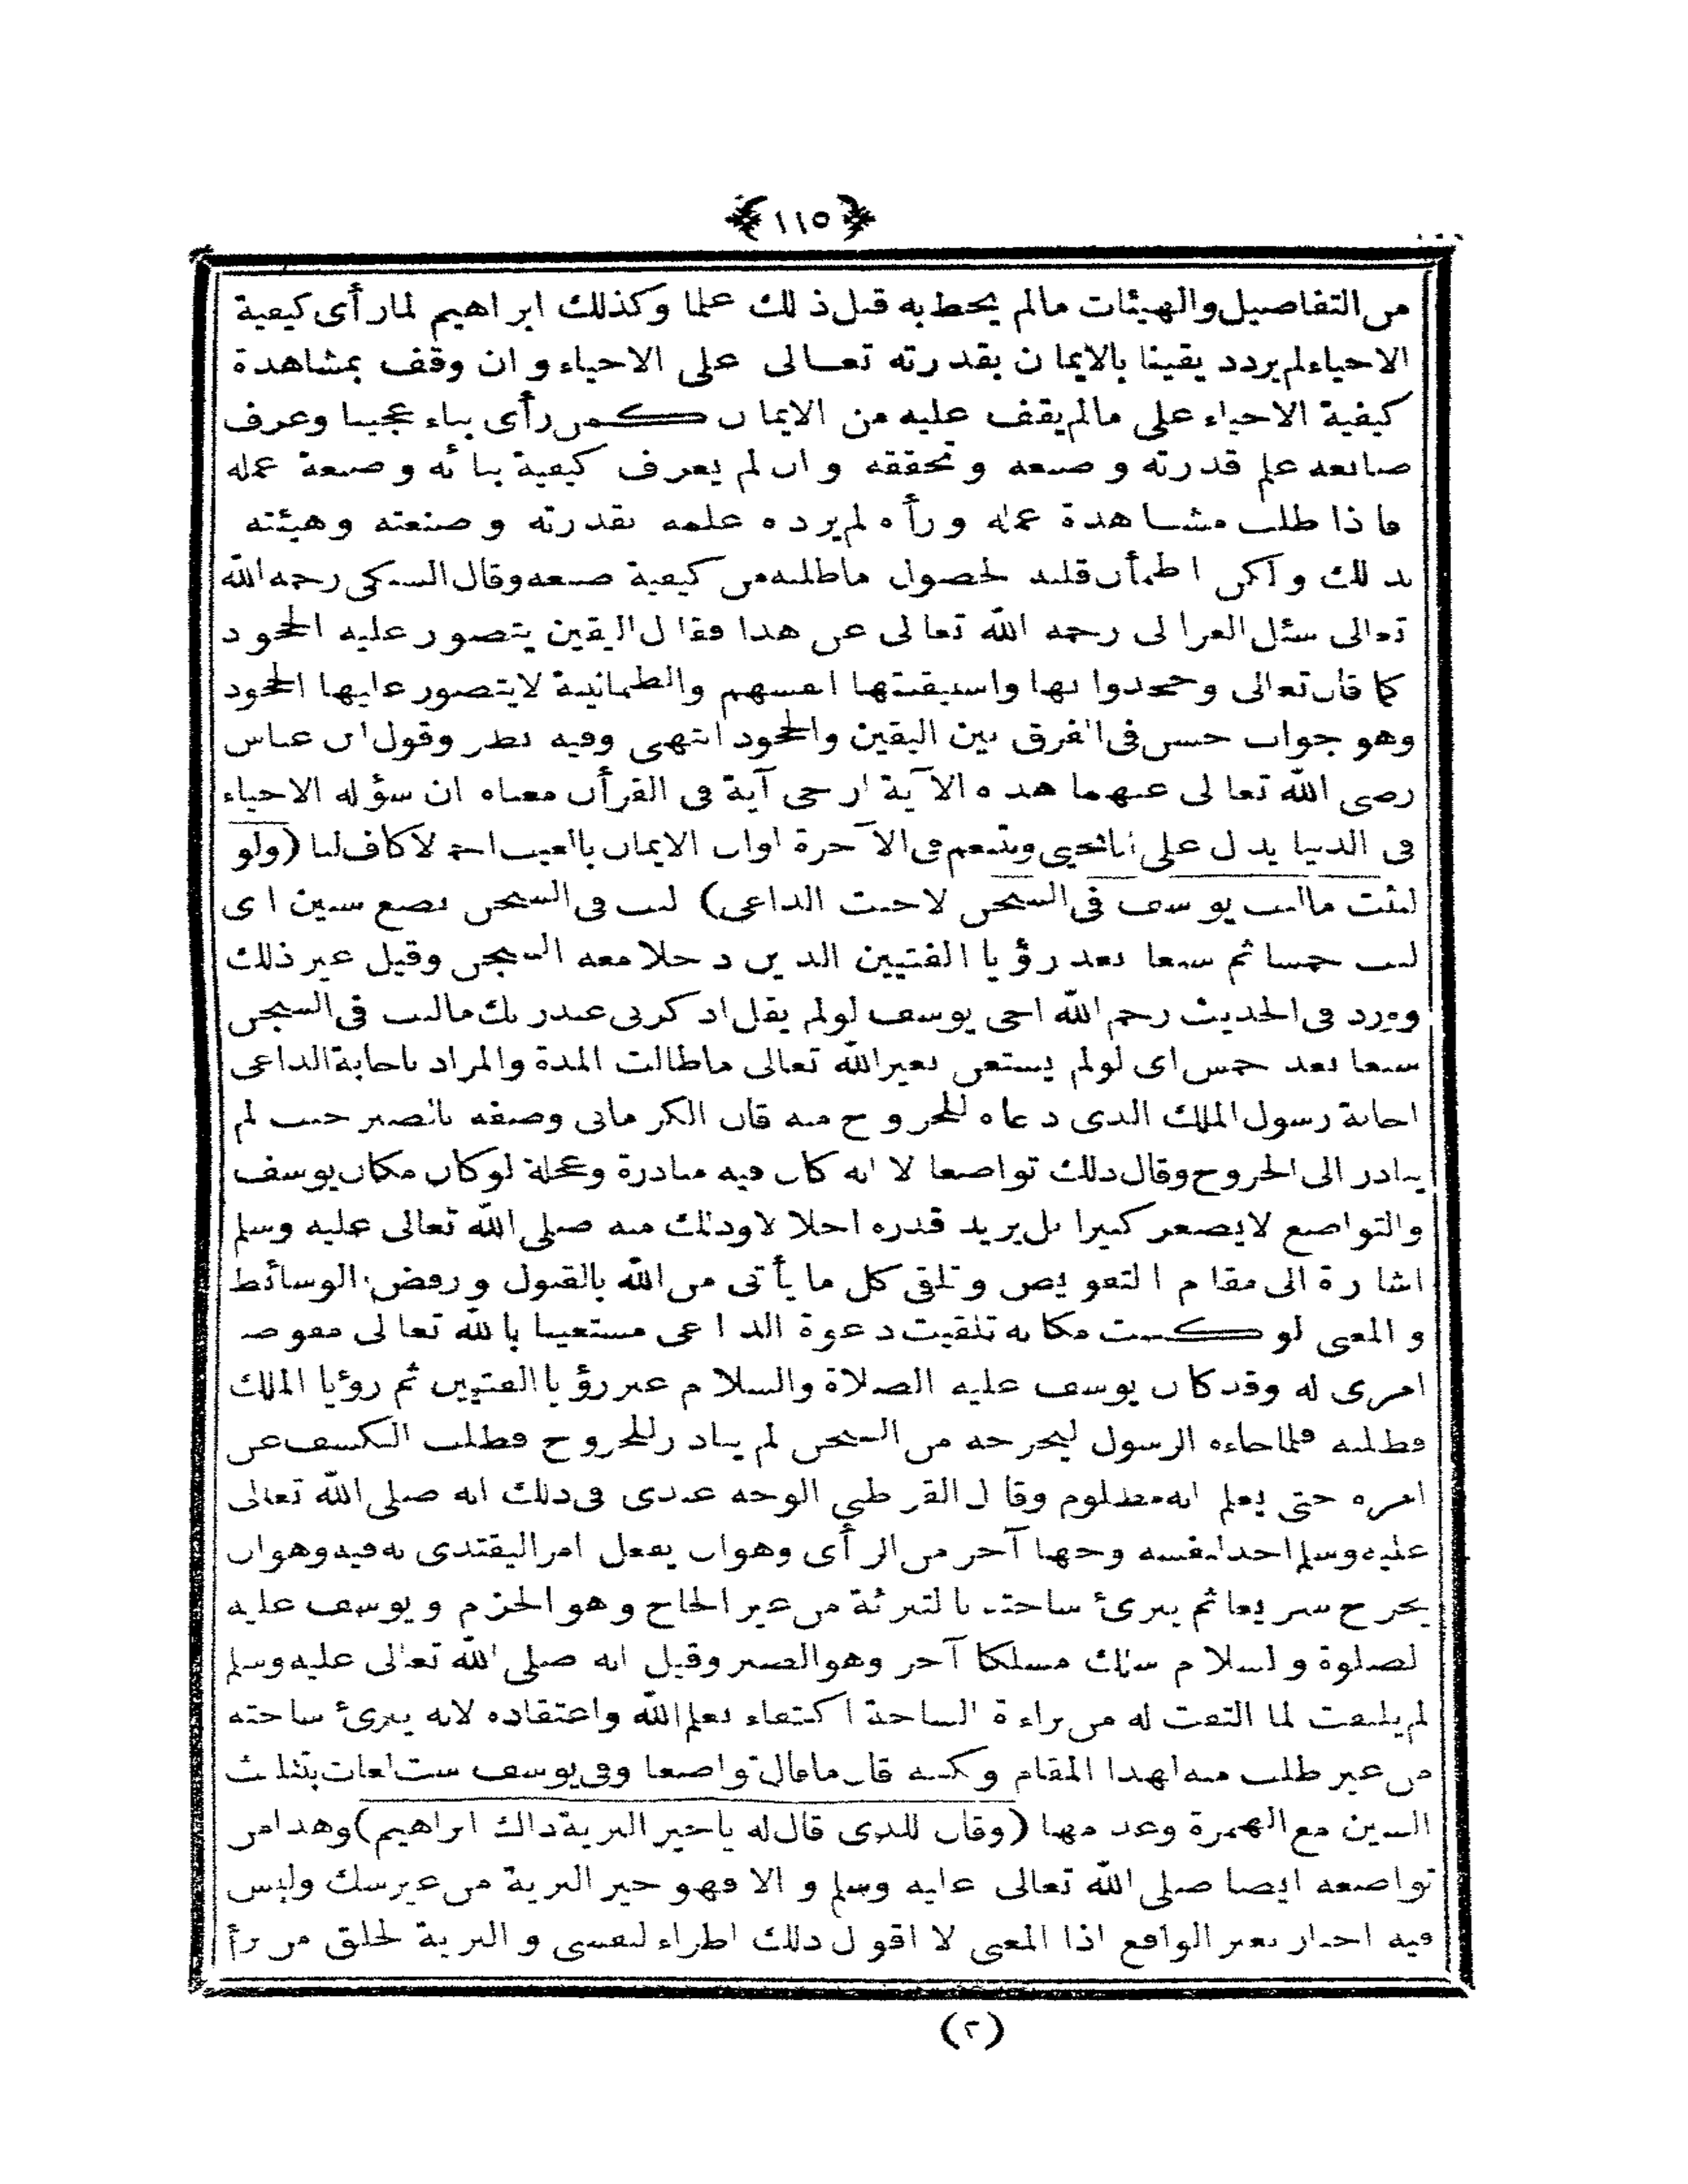 ﴿١١٥﴾
من التفاصيل والهيئات مالم يحط به قبل ذلك علما وكذلك ابراهيم لمارأى كيفية
الاحياء لم يردد يقينا بالايمان بقدرته تعالى على الاحياء وان وقف بمشاهدة
كيفية الاحياء على مالم يقف عليه من الايمان كمن رأى بناء عجيبا وعرف
صانعه علم قدرته وصنعه وتحققه وان لم يعرف كيفية بنائه وصنعة عمله
فاذا طلب مشاهدة عمله ورأه لم يرده علمه بقدرته وصنعته وهيئته
بذلك ولكن اطمأن قلبه لحصول ماطلبه من كيفية صنعه وقال السبكى رحمه الله
تعالى سئل الغزالى رحمه الله تعالى عن هذا فقال اليقين يتصور عليه الجحود
كما قال تعالى وجحدوا بها واستيقنتها انفسهم والطمانينة لايتصور عليها الجحود
وهو جواب حسن فى الفرق بين اليقين والجحود انتهى وفيه نظر وقول ابن عباس
رضى الله تعالى عنهما هذه الآية ارجى آية فى القرأن معناه ان سؤله الاحياء
فى الدنيا يدل على انانحيى ونتنعم فى الآخرة اوان الايمان بالغيب اجمالا كاف لنا (ولو
لبثت مالبث يوسف فى السجن لاجبت الداعى) لبث فى السجن بضع سنين اى
لبث خمسا ثم سبعا بعد رؤيا الفتيين الذين دخلا معه السجن وقيل غير ذلك
وورد فى الحديث رحم الله اخى يوسف لولم يقل اذكرنى عندربك مالبث فى السجن
سبعا بعد خمس اى لولم يستعن بغيرالله تعالى ماطالت المدة والمراد باجابة الداعى
اجابة رسول الملك الذى دعاه للخروج منه قال الكرمانى وصفه بالصبر حيث لم
يبادر الى الخروج وقال ذلك تواضعا لا انه كان فيه مبادرة وعجلة لوكان مكان يوسف
والتواضع لايصغر كبيرا بل يزيد قدره اجلالا وذلك منه صلى الله تعالى عليه وسلم
اشارة الى مقام التفويض وتلقى كل ما يأتى من الله بالقبول ورفض الوسائط
والمعنى لو كنت مكانه تلقيت دعوة الداعى مستعينا بالله تعالى مفوضا
امرى له وقدكان يوسف عليه الصلاة والسلام عبر رؤيا الفتيين ثم رؤيا الملك
فطلبه فلماجاءه الرسول ليخرجه من السجن لم يبادر للخروج فطلب الكشف عن
امره حتى يعلم انه مظلوم وقال القرطبى الوجه عندى فى ذلك انه صلى الله تعالى
عليه وسلم اخذ لنفسه وجها آخر من الرأى وهوان يفعل امرا ليقتدى به فيه وهوان
يخرج سريعا ثم يبرئ ساحته بالتبرئة من غير الحاح وهو الحزم ويوسف عليه
لصلوة ولسلام سلك مسلكا آخر وهوالصبر وقيل انه صلى الله تعالى عليه وسلم
لم يلتفت لما التفت له من براءة الساحة اكتفاء بعلم الله واعتقاده لانه يبرئ ساحته
من غير طلب منه لهذا المقام ولكنه قال ماقال تواضعا وفى يوسف ست لغات بتثليث
السين مع الهمزة وعدمها (وقال للذى قال له ياخير البرية ذاك ابراهيم) وهذا من
تواضعه ايضا صلى الله تعالى عليه وسلم والا فهو خير البرية من غير شك وليس
فيه اخبار بغير الواقع اذا المعنى لا اقول ذلك اطراء لنفسى والبرية لخلق من برأ
(٢)